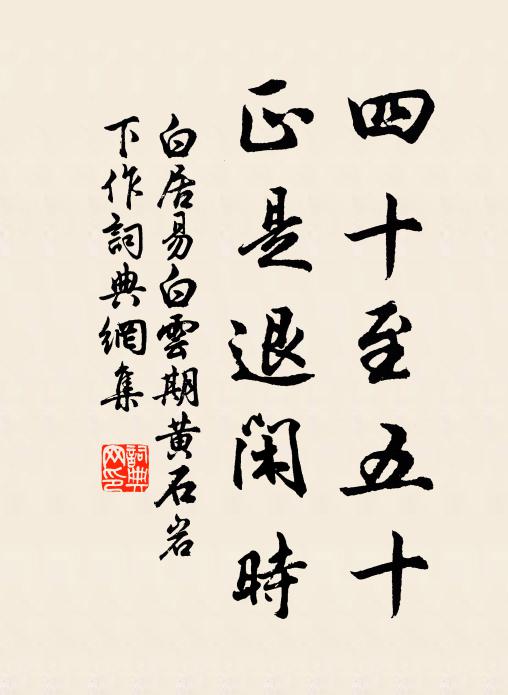 四十至五十
正是退閑時
白居易白雲期黄石岩
下作詞典網集
詞典网印